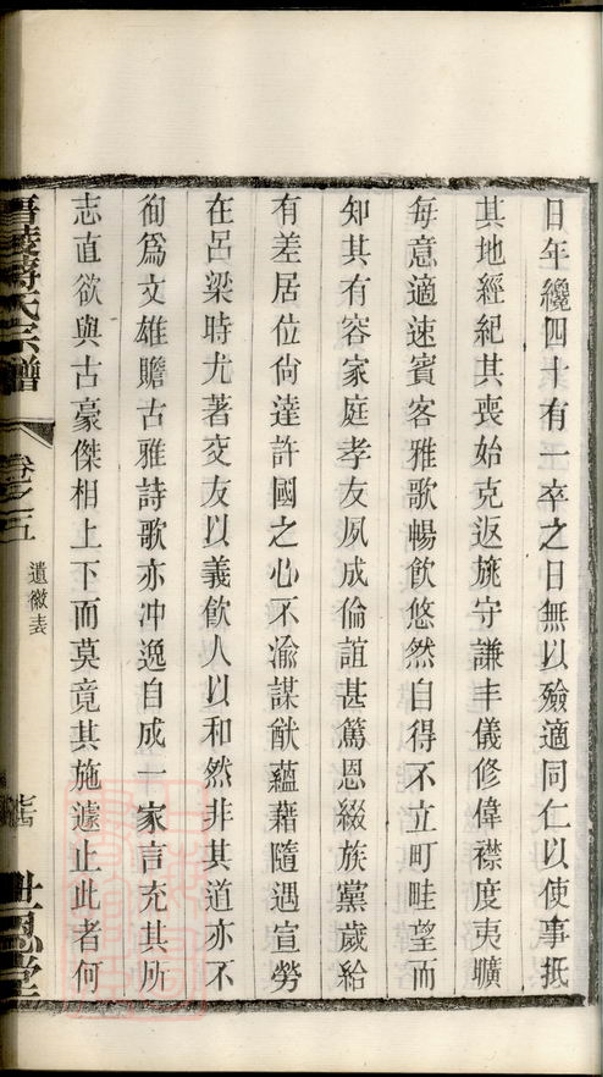 日年纔四十有一卒之日無以殮適同仁以使事抵
其地經紀其喪始克返旐守謙丰儀修偉襟度夷曠
每意適速賓客雅歌暢飲悠然自得不立町畦望而
知其有容家庭孝友夙成倫誼甚篤恩綴族黨歲給
有差居位尙達許國之心不渝謀猷蘊藉隨遇宣勞
在呂梁時尤著交友以義飮人以和然非其道亦不
徇爲文雄贍古雅詩歌亦冲逸自成一家言充其所
志直欲與古豪傑相上下而莫竟其施遽止此者何
晉陵蔣氏宗譜
卷之五
遺徽表
世恩堂